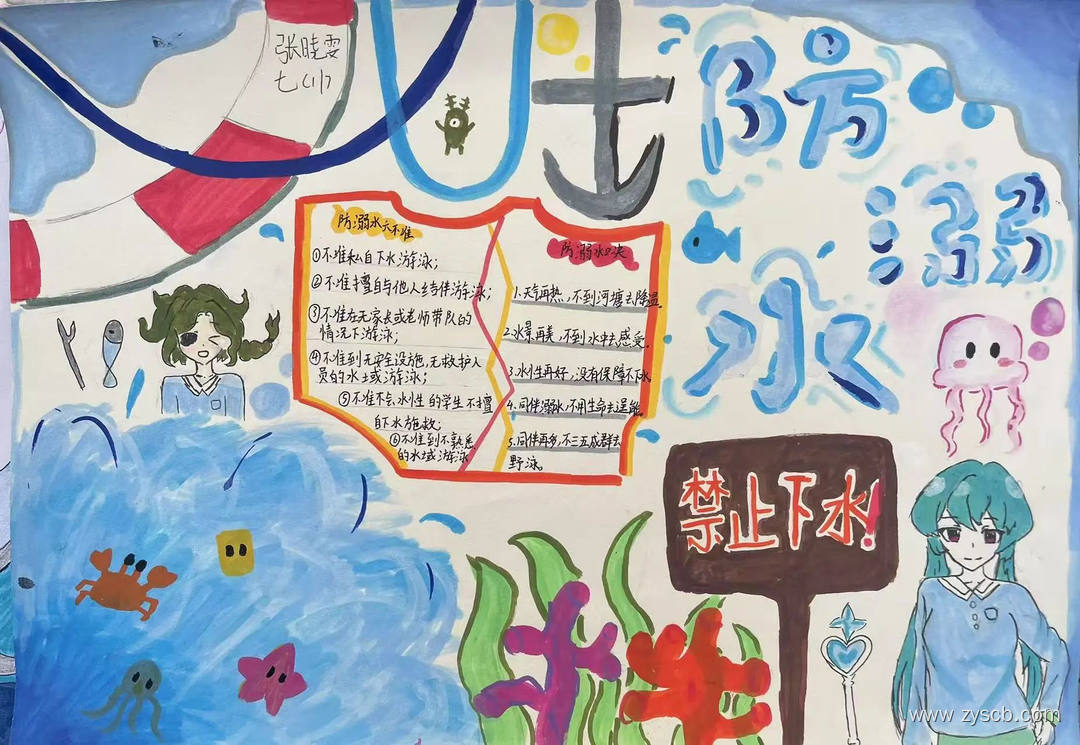 张晓雯
七(1)
防
溺
水
防溺水六不准
①不准私自下水游泳；
②不准擅自与他人结伴游泳；
③不准在无家长或老师带队的
情况下游泳；
④不准到无安全设施，无救护人
员的水域游泳；
⑤不准不会水性的学生不擅
自下水施救；
⑥不准到不熟悉
的水域游泳
防溺水口决
1.天气再热，不到河塘去降温
2.水景再美，不到水中去感受。
3.水性再好，没有保障不下水
4.同伴溺水，不用生命去逞能
5.同伴再多，不三五成群去
野泳。
禁止下水!
www.zyscb.com